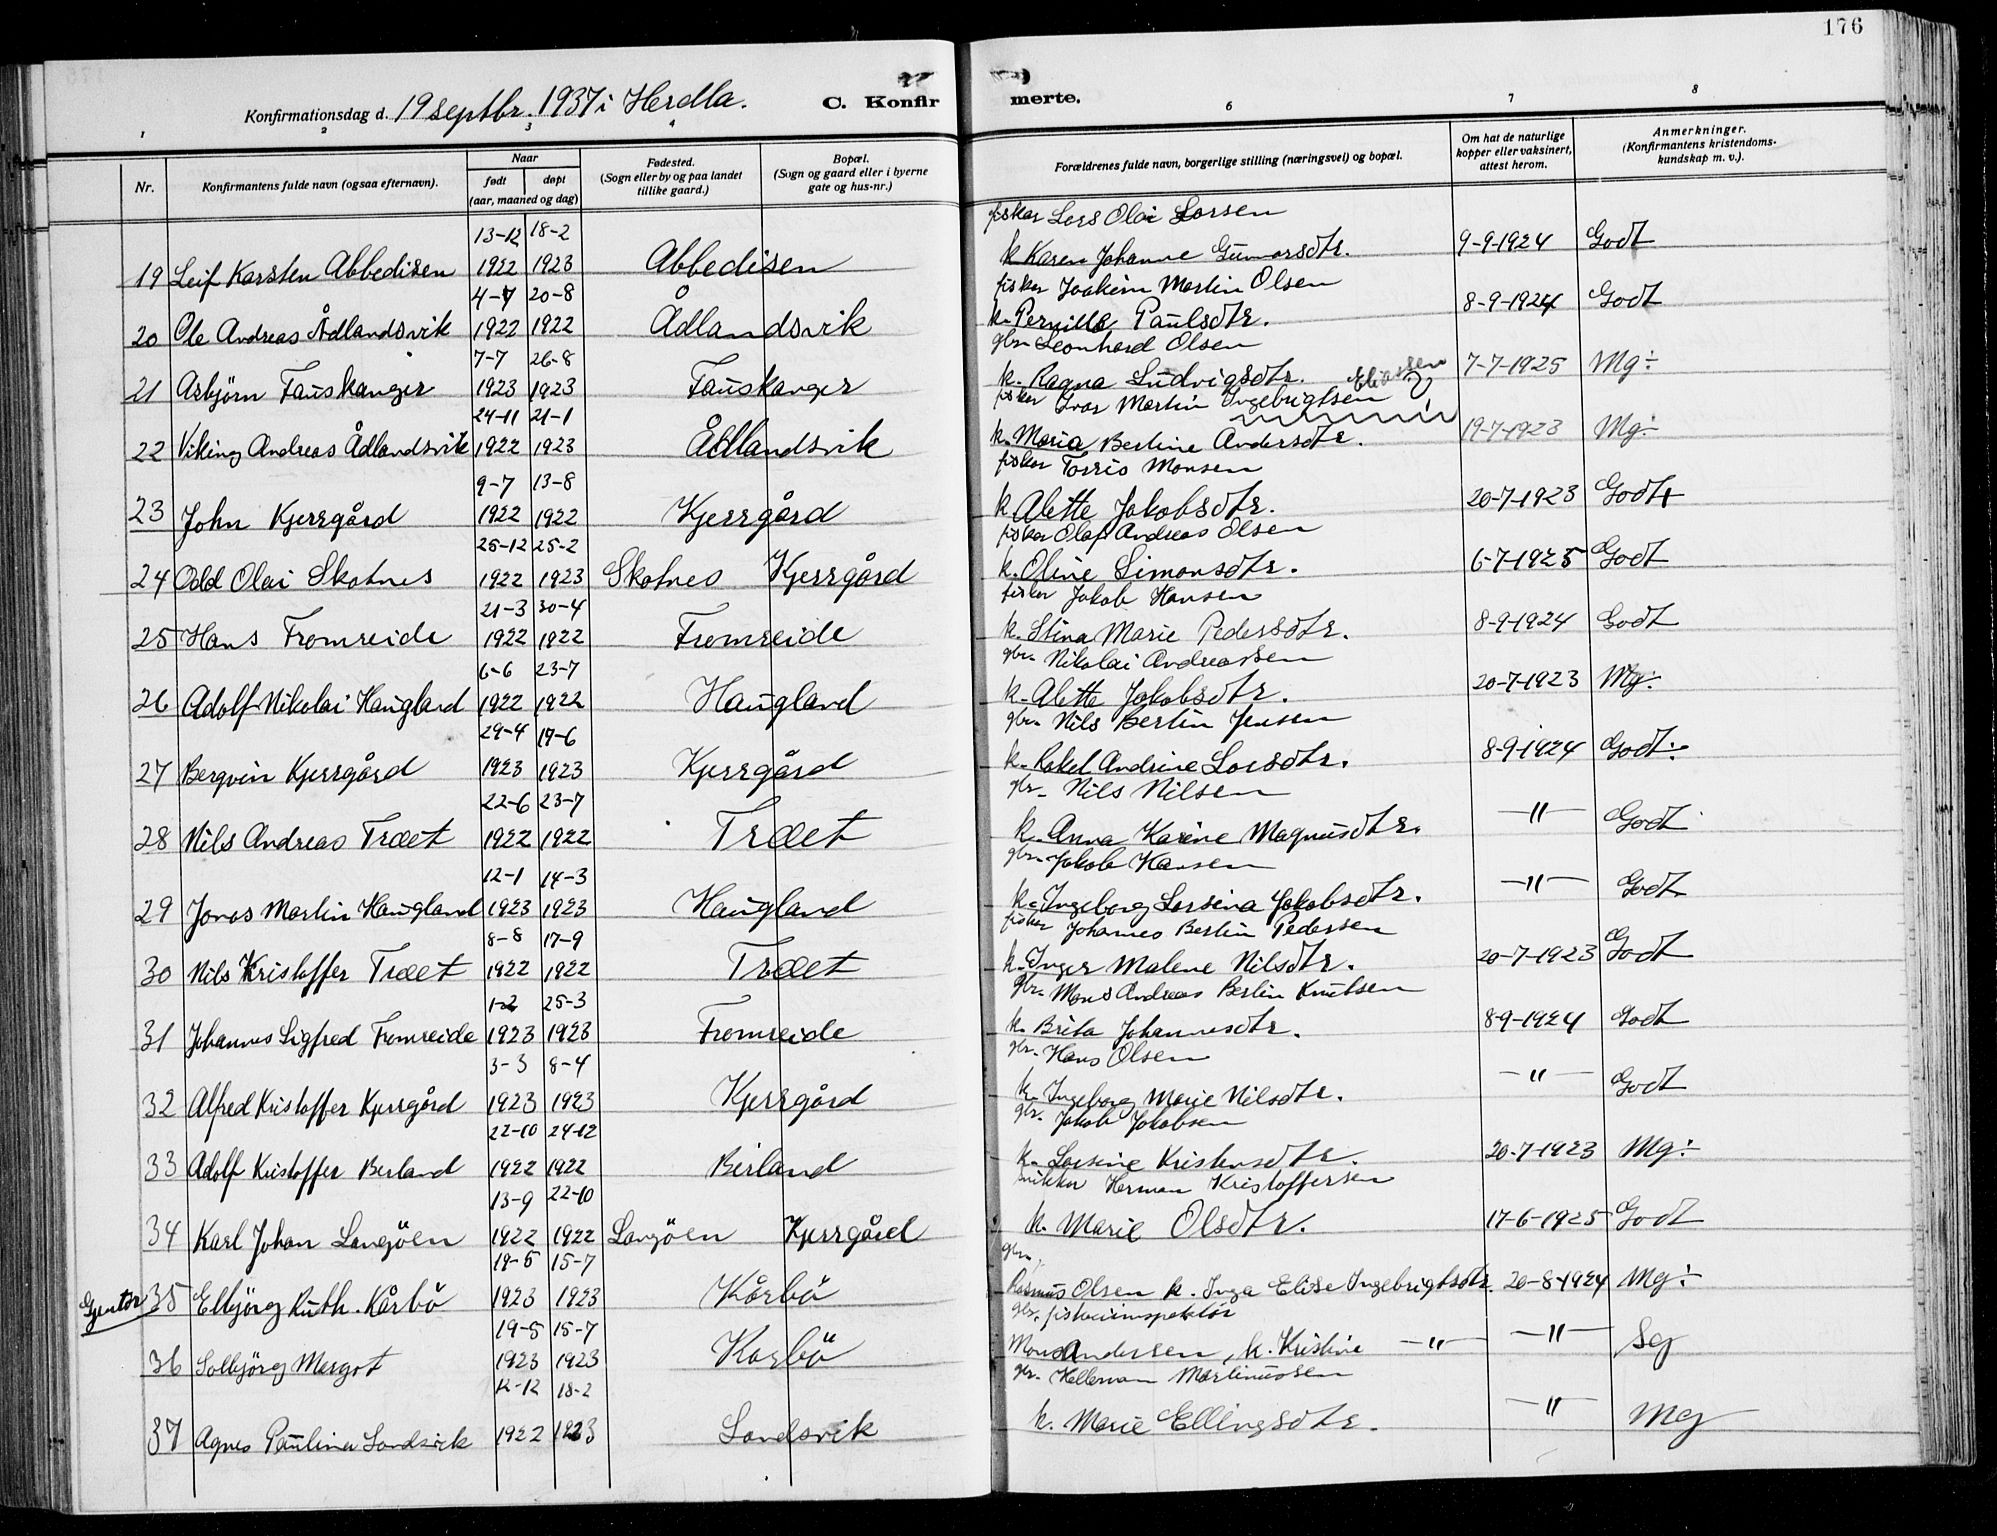 176
Konfirmationsdag d. 19 septbr. 1937 i Herdla.
C. Konfir merte.
1 2 3 4 6 7 8
Nr.
Konfirmantens fulde navn (ogsaa efternavn).
Naar
født døpt
(aar, maaned og dag)
Fødested.
(Sogn eller by og paa landet
tillike gaard.)
Bopæl.
(Sogn og gaard eller i byerne
gate og hus-nr.)
Forældrenes fulde navn, borgerlige stilling (næringsvei) og bopæl.
Om hat de naturlige
kopper eller vaksinert,
attest herom.
Anmerkninger.
(Konfirmantens kristendoms-
kundskap m. v.).
13-12 18-2 fisker Lars Olai Larsen
19 Leif Karsten Abbedisen 1922 1923 Abbedisen k Karen Johanne Gunnarsdtr. 9-9-1924 Godt
4-7 20-8 fisker Joakim Martin Olsen
20 Ole Andreas Ådlandsvik 1922 1922 Ådlandsvik k. Pernille Paulsdtr. 8-9-1924 Godt
7-7 26-8 gbr. Leonhard Olsen
21 Asbjörn Fauskanger 1923 1923 Fauskanger k. Ragna Ludvigsdtr. 7-7-1925 Mg÷
Eliassen
24-11 21-1 fisker Ivar Martin Ingebrigtsen
22 Viking Andreas Ådlandsvik 1922 1923 Ådlandsvik k. Maria Bertine Andersdtr. 19-7-1923 Mg÷
9-7 13-8 fisker Torris Monsen
23 John Kjerrgård 1922 1922 Kjerrgård k Alette Jakobsdtr. 20-7-1923 Godt+
25-12 25-2 fisker Olaf Andreas Olsen
24 Odd Olai Skotnes 1922 1923 Skotnes Kjerrgård k. Oline Simonsdtr. 6-7-1925 Godt
21-3 30-4 fisker Jakob Hansen
25 Hans Fromreide 1922 1922 Fromreide k. Stina Marie Pedersdtr. 8-9-1924 Godt
6-6 23-7 gbr. Nikolai Andreassen
26 Adolf Nikolai Haugland 1922 1922 Haugland k. Alette Jakobsdtr. 20-7-1923 Mg÷
29-4 19-6 gbr. Nils Bertin Jensen
27 Bergvin Kjerrgård 1923 1923 Kjerrgård k. Rakel Andrine Larsdtr. 8-9-1924 Godt÷
22-6 23-7 gbr. Nils Nilsen
28 Nils Andreas Træet 1922 1922 Træet k. Anna Karine Magnusdtr. —"— Godt
12-1 14-3 gbr. Jakob Hansen
29 Jonas Martin Haugland 1923 1923 Haugland k. Ingeborg Larsina Jakobsdtr. —"— Godt
8-8 17-9 fisker Johannes Bertin Pedersen
30 Nils Kristoffer Træet 1922 1922 Træet k. Inger Malene Nilsdtr. 20-7-1923 Godt
1-2 25-3 gbr. Mons Andreas Bertin Knutsen
31 Johannes Sigfred Fromreide 1923 1923 Fromreide k. Brita Johannesdtr. 8-9-1924 Godt
3-3 8-4 gbr. Hans Olsen
32 Alfred Kristoffer Kjerrgård 1923 1923 Kjerrgård k. Ingeborg Marie Nilsdtr. —"— Godt
22-10 24-12 gbr. Jakob Jakobsen
33 Adolf Kristoffer Berland 1922 1922 Berland k. Larsine Kristensdtr. 20-7-1923 Mg÷
13-9 22-10 snikker Herman Kristoffersen
34 Karl Johan Langöen 1922 1922 Langöen Kjerrgård k. Marie Olsdtr. 17-6-1925 Godt
19-5 15-7 gbr.
Gjenter 35 Elbjörg Ruth. Kårbö 1923 1923 Kårbö Rasmus Olsen k. Inga Elise Ingebrigtsdtr. 20-8-1924 Mg÷
19-5 15-7 gbr. fiskeriinspektör
36 Solbjörg Margot 1923 1923 Karbö Mons Andersen, k. Kristine —"— —"— Sg
12-12 18-2 gbr. Martinussen
37 Agnes Paulina Landsvik 1922 1923 Landsvik k. Marie Ellingsdtr. —"— Mg